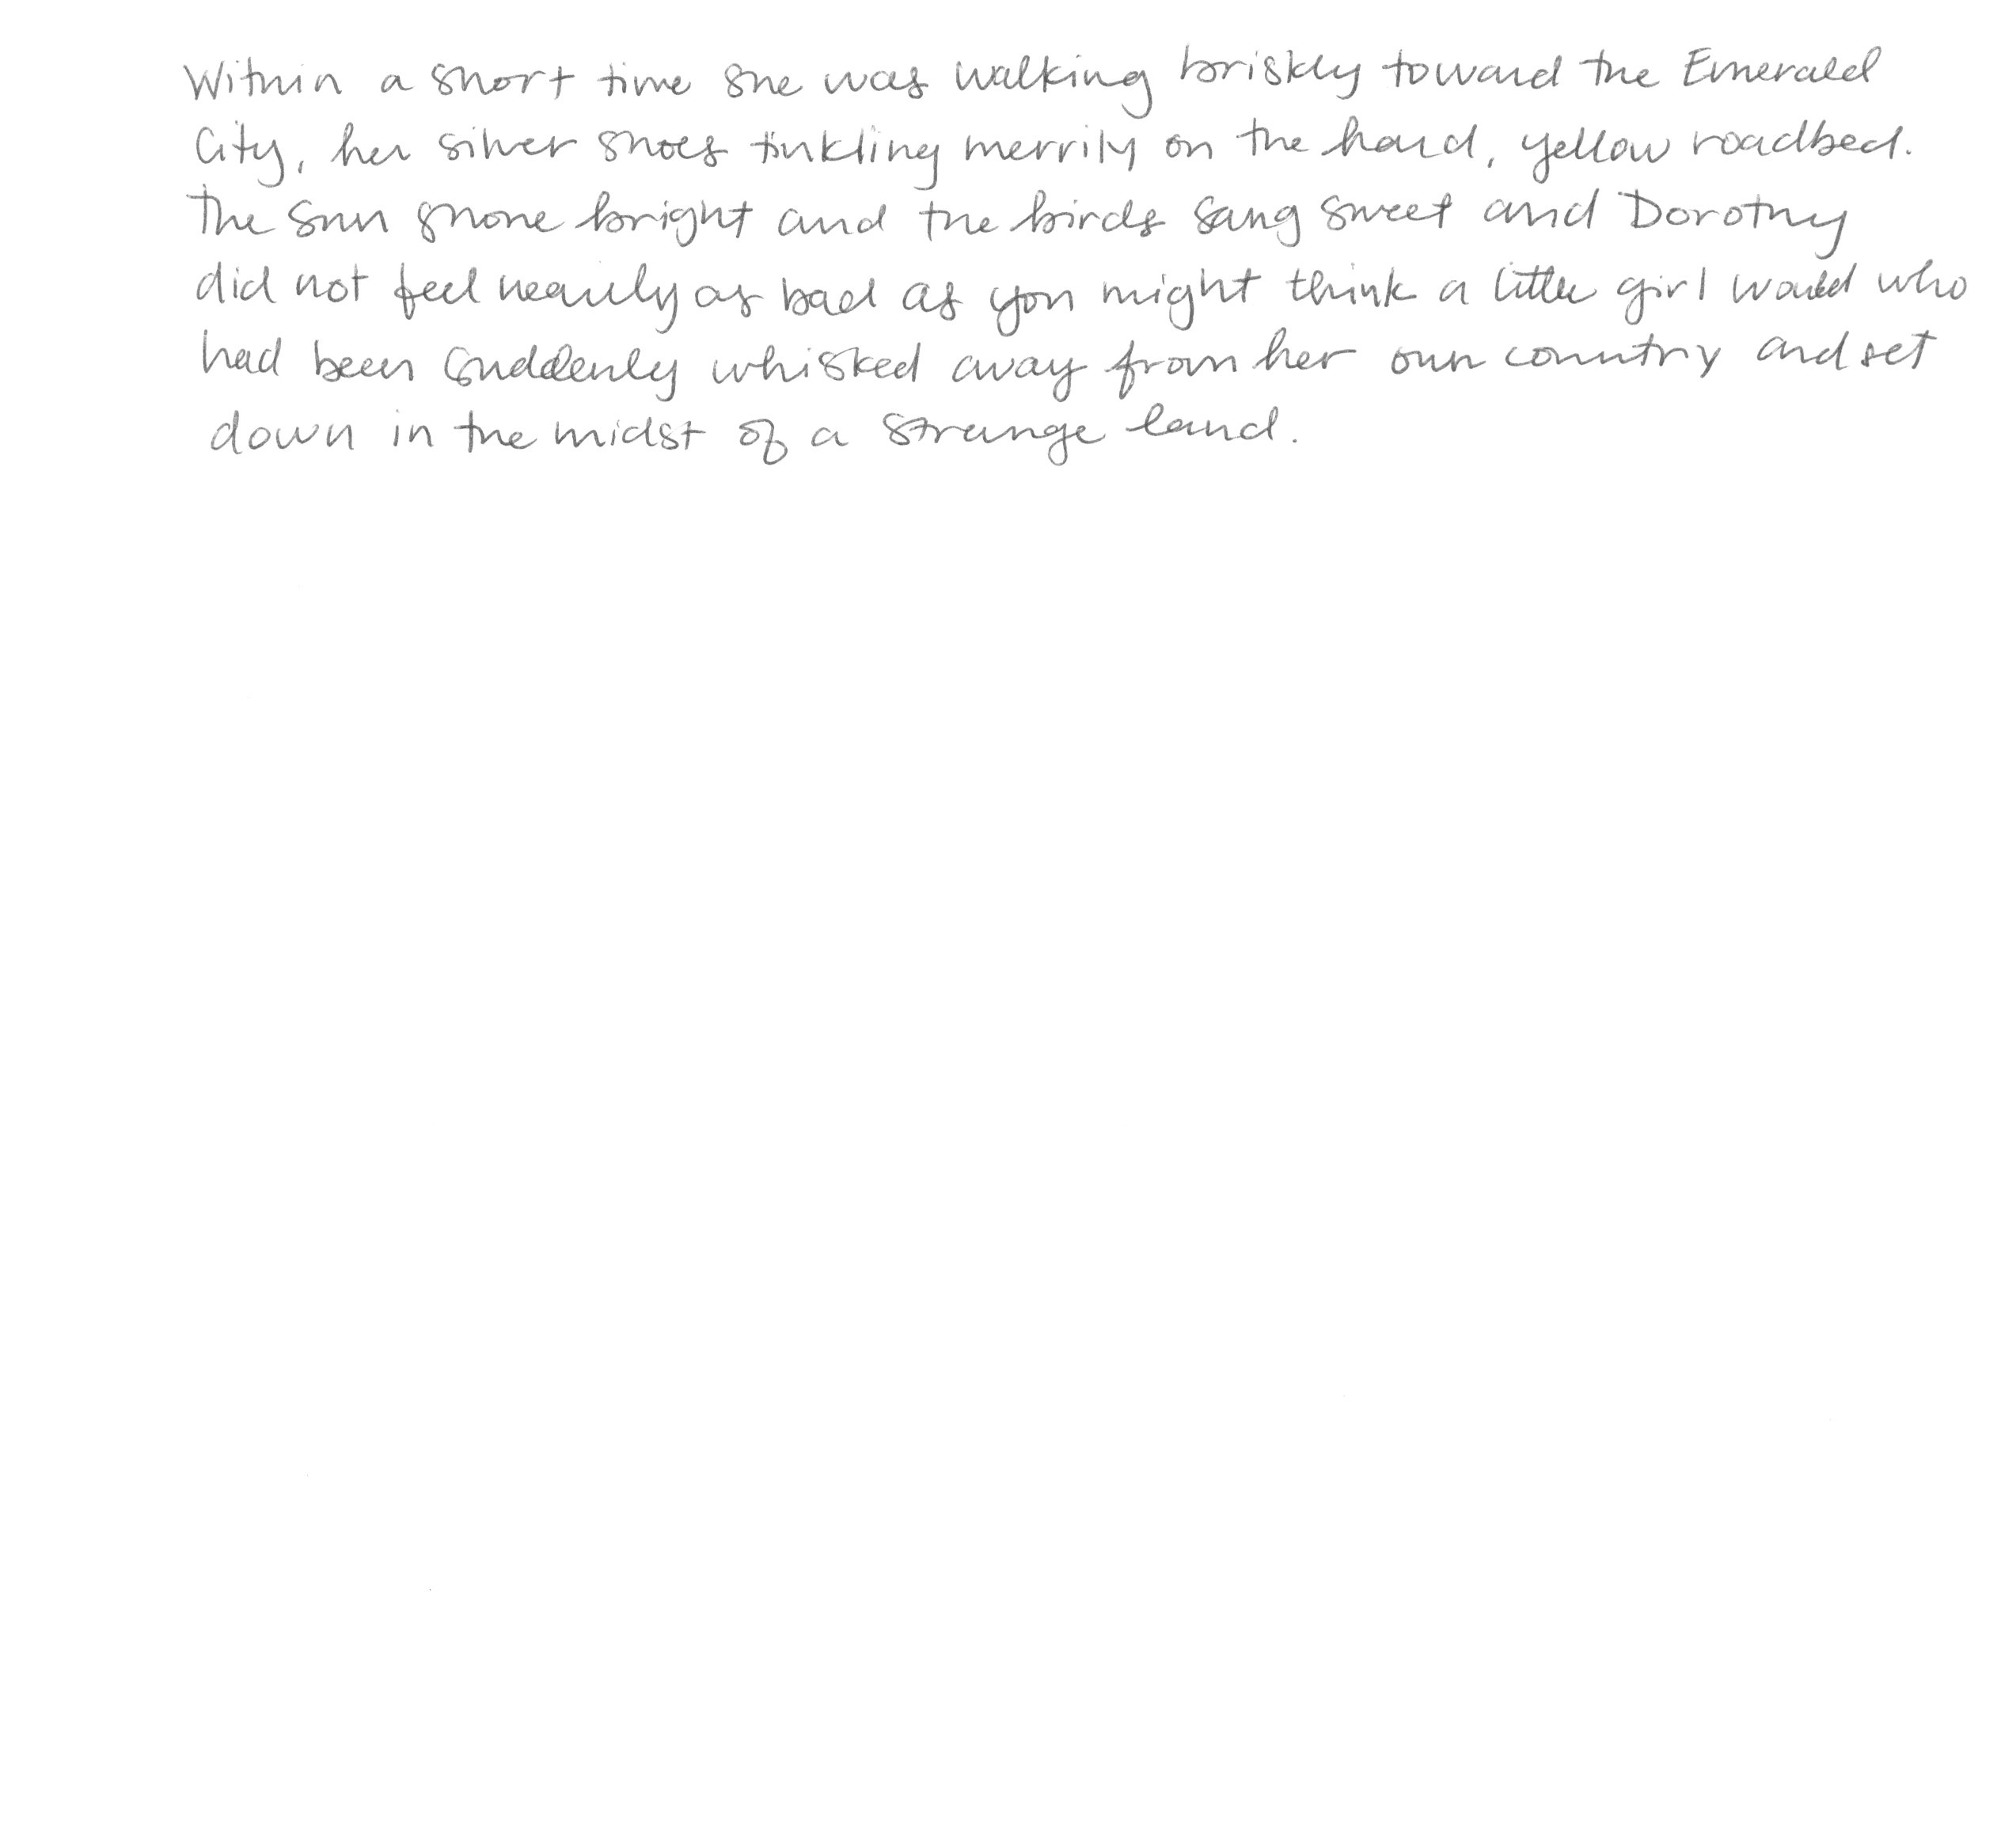 Within a short time she was walking briskly toward the Emerald
City, her silver shoes tinkling merrily on the hard, yellow roadbed.
The sun shone bright and the birds sang sweet and Dorothy
did not feel nearly as bad as you might think a little girl would who
had been suddenly whisked away from her own country and set
down in the midst of a strange land.